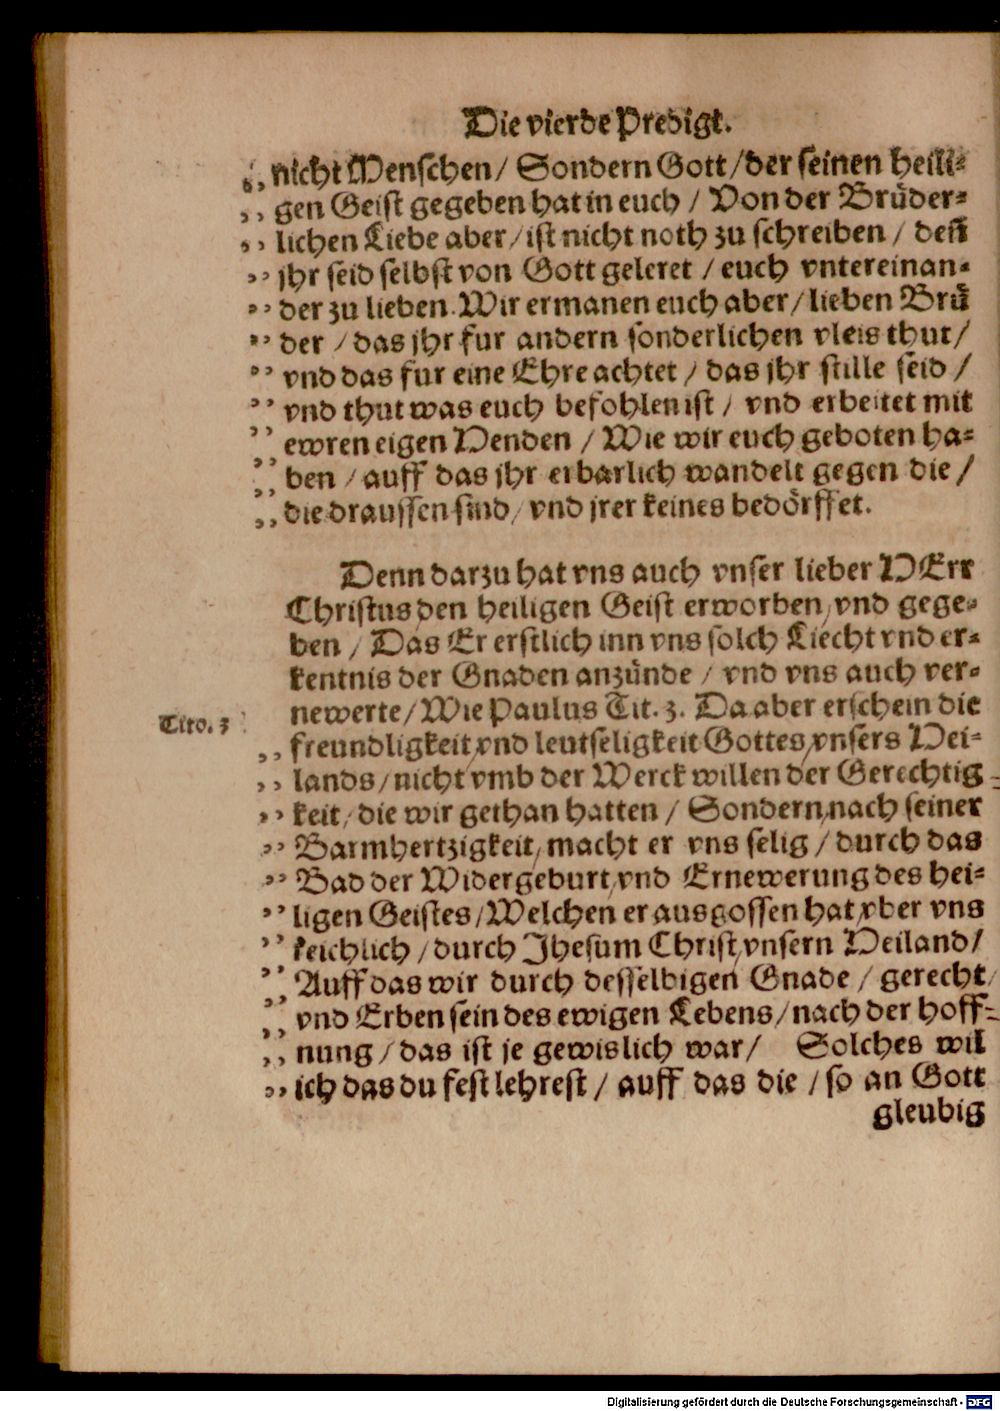 Die vierde Predigt.
,, nicht Menschen / Sondern Gott / der seinen heili⸗
,, gen Geist gegeben hat in euch / Von der Brüder⸗
,, lichen Liebe aber / ist nicht noth zu schreiben / deñ
,, jhr seid selbst von Gott geleret / euch vntereinan⸗
,, der zu lieben. Wir ermanen euch aber / lieben Brü
,, der / das jhr fur andern sonderlichen vleis thut /
,, vnd das fur eine Ehre achtet / das jhr stille seid /
,, vnd thut was euch befohlen ist / vnd erbeitet mit
,, ewren eigen Henden / Wie wir euch geboten ha⸗
,, ben / auff das jhr erbarlich wandelt gegen die /
,, die draussen sind / vnd jrer keines bedörffet.
Denn darzu hat vns auch vnser lieber HErr
Christus / den heiligen Geist erworben / vnd gege⸗
ben / Das Er erstlich inn vns solch Liecht vnd er⸗
kentnis der Gnaden anzünde / vnd vns auch ver⸗
newerte / Wie Paulus Tit. 3. Da aber erschein die
Tito. 3
,, freundligkeit / vnd leutseligkeit Gottes / vnsers Hei⸗
,, lands / nicht vmb der Werck willen der Gerechtig⸗
,, keit / die wir gethan hatten / Sondern / nach seiner
,, Barmhertzigkeit / macht er vns selig / durch das
,, Bad der Widergeburt / vnd Ernewerung des hei⸗
,, ligen Geistes / Welchen er ausgossen hat / vber vns
,, keichlich / durch Jhesum Christ / vnsern Heiland /
,, Auff das wir durch desselbigen Gnade / gerecht /
,, vnd Erben sein des ewigen Lebens / nach der hoff⸗
,, nung / das ist je gewislich war / Solches wil
,, ich das du fest lehrest / auff das die / so an Gott
gleubig
Digitalisierung gefördert durch die Deutsche Forschungsgemeinschaft - DFG